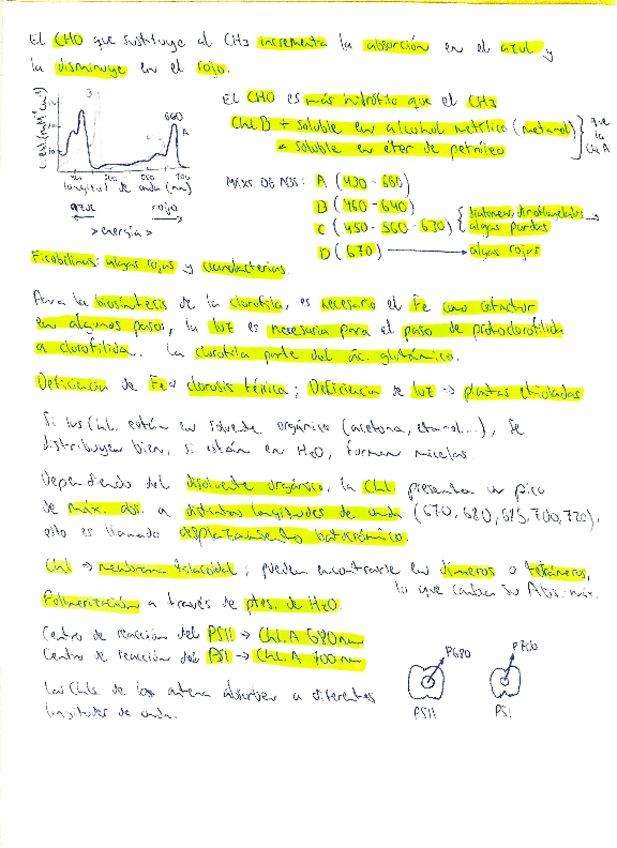 El CHO que sustituye al CH3 incrementa la absorción en el azul y
la disminuye en el rojo.
El CHO es más hidrófilo que el CH3
Chl B + soluble en alcohol metílico (metanol)
- soluble en éter de petróleo
que la Chl A
660
A
longitud de onda (nm)
azul rojo
> energía >
MÁXS. DE ABS: A (430 - 660)
B (460 - 640)
C (450 - 560 - 630) diatomeas, dinoflagelados
algas pardas
D (670) → algas rojas
Ficobilinas: algas rojas y cianobacterias.
Para la biosíntesis de la clorofila, es necesario el Fe como cofactor
en algunos pasos, la luz es necesaria para el paso de protoclorofilida
a clorofilida. La clorofila parte del ác. glutámico.
Deficiencia de Fe → clorosis férrica; Deficiencia de luz → plantas etioladas
Si las Chl. están en solvente orgánico (acetona, etanol...), se
distribuyen bien, si están en H2O, forman micelas.
Dependiendo del disolvente orgánico, la Chl. presenta un pico
de máx. abs. a distintas longitudes de onda (670, 680, 685, 700, 720),
esto es llamado desplazamiento batocrómico.
Chl → membrana tilacoidal; pueden encontrarse en dímeros o tetrámeros,
lo que cambia su Abs. máx.
Polimerización a través de ptes. de H2O.
Centro de reacción del PSII → Chl. A 680nm
Centro de reacción del PSI → Chl. A 700nm
P680 P700
Las Chls de las antena absorben a diferentes
longitudes de onda.
PSII PSI